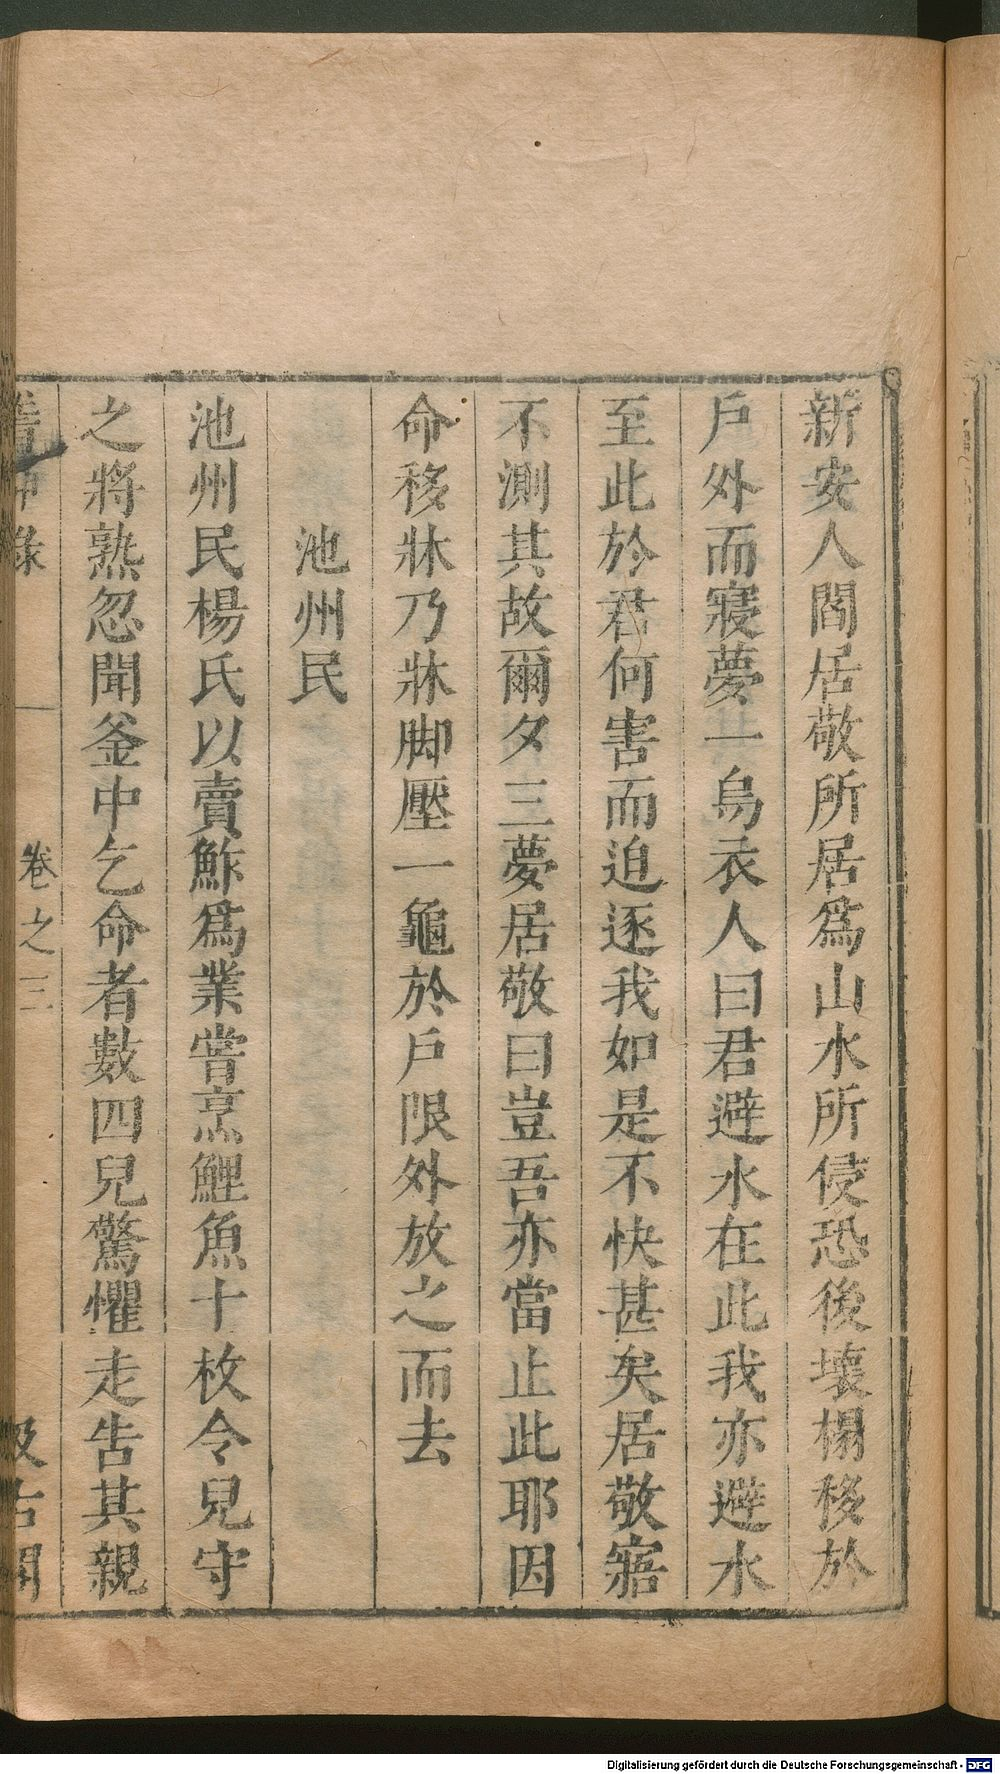 新安人閻居敬所居爲山水所侵恐後壞榻移於
戶外而寢夢一烏衣人曰君避水在此我亦避水
至此於君何害而迫逐我如是不快甚矣居敬寤
不測其故爾夕三夢居敬曰豈吾亦當止此耶因
命移牀乃牀脚壓一龜於戶限外放之而去
池州民
池州民楊氏以賣鮓爲業嘗烹鯉魚十枚令兒守
之將熟忽聞釜中乞命者數四兒驚懼走告其親
卷之三
Digitalisierung gefördert durch die Deutsche Forschungsgemeinschaft - DFG